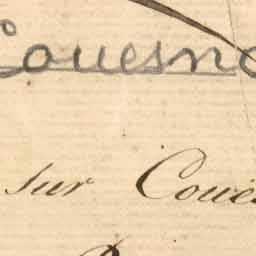 Couesno
sur Coues